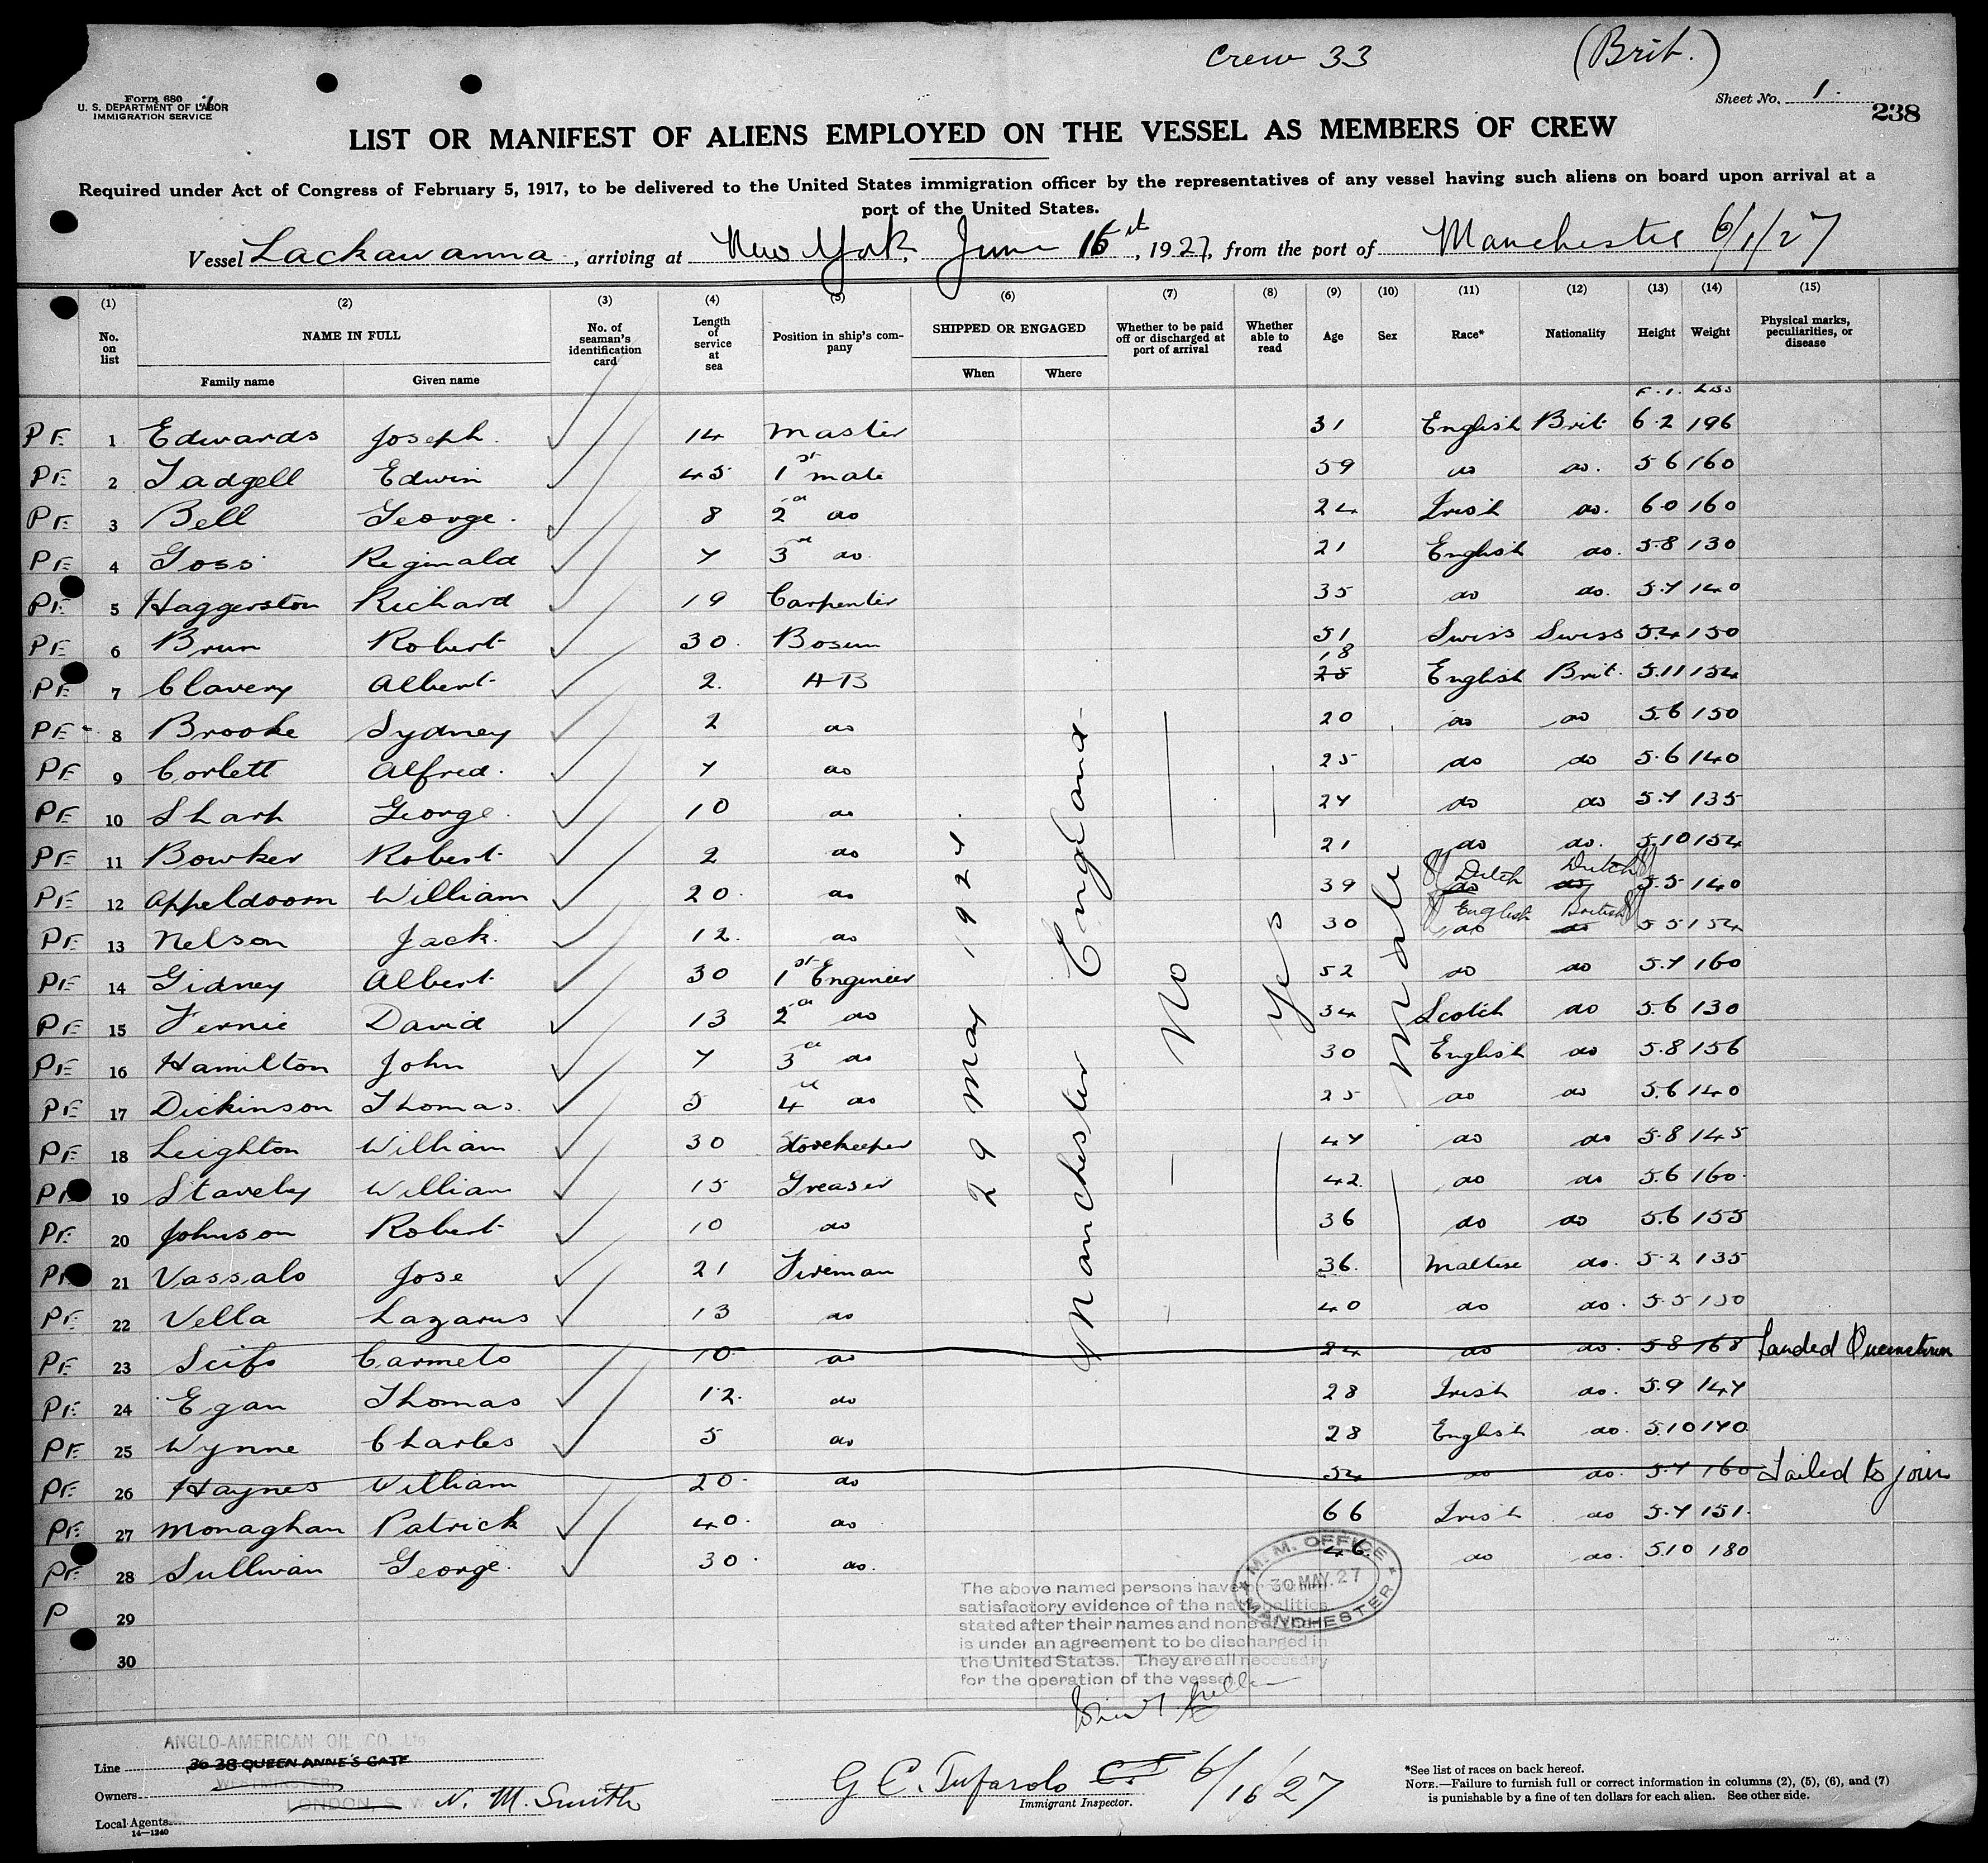 Crew 33 (Brit.)
Form 680
U. S. DEPARTMENT OF LABOR
IMMIGRATION SERVICE
Sheet No. 1.
238
LIST OR MANIFEST OF ALIENS EMPLOYED ON THE VESSEL AS MEMBERS OF CREW
Required under Act of Congress of February 5, 1917, to be delivered to the United States immigration officer by the representatives of any vessel having such aliens on board upon arrival at a
port of the United States.
Vessel Lackawanna, arriving at New York, June 16th, 1927, from the port of Manchester 6/1/27
(1) (2) (3) (4) (5) (6) (7) (8) (9) (10) (11) (12) (13) (14) (15)
No. on list NAME IN FULL Family name Given name No. of seaman's identification card Length of service at sea Position in ship's company SHIPPED OR ENGAGED When Where Whether to be paid off or discharged at port of arrival Whether able to read Age Sex Race* Nationality Height Weight Physical marks, peculiarities, or disease
PE 1 Edwards Joseph. 14 Master 31 English Brit. 6.2 196
PE 2 Tadgell Edwin 45 1st mate 59 do do. 5 6 160
PE 3 Bell George. 8 2nd do 24 Irish do. 6.0 160
PE 4 Goss Reginald 7 3rd do. 21 English do. 5.8 130
PE 5 Haggerston Richard 19 Carpenter 35 do do. 5.7 140
PE 6 Brun Robert 30. Bosun 51 Swiss Swiss 5.4 150
PE 7 Clavery Albert 2. AB 18 25 English Brit. 5.11 154
PE 8 Brooke Sydney 2 do 20 do do 5.6 150
PE 9 Corlett Alfred. 7 do 25 do do 5.6 140
PE 10 Sharh George. 10 do 27 do do 5.7 135
PE 11 Bowker Robert 2 do 21 do do. 5.10 154
PE 12 Appeldoorn William 20. do 39 do Dutch do Dutch 5.5 140
PE 13 Nelson Jack. 12. do 30 English do British do 5 5 154
PE 14 Gidney Albert 30 1st Engineer 52 do do 5.7 160
PE 15 Fernie David 13 2nd do 34 Scotch do 5.6 130
PE 16 Hamilton John 7 3rd do 30 English do 5.8 156
PE 17 Dickinson Thomas. 5 4th do 25 do do 5.6 140
PE 18 Leighton William 30 Storekeeper 47 do do 5.8 145
PE 19 Staveley William 15 Greaser 42. do do 5.6 160.
PE 20 Johnson Robert 10 do 36 do do 5.6 155
PE 21 Vassalo Jose 21 Fireman 36. Maltese do. 5.2 135
PE 22 Vella Lazarus 13 do 40 do do. 5.5 130
PE 23 Scifo Carmelo 10 do 24 do do. 5.8 168 Landed Queenstown
PE 24 Egan Thomas 12. do 28 Irish do. 5.9 147
PE 25 Wynne Charles 5 do 28 English do. 5.10 140
PE 26 Haynes William 20. do 54 do do. 5.7 160 Failed to join
PE 27 Monaghan Patrick 40. do 66 Irish do 5.7 151.
PE 28 Sullivan George. 30. do. 46. do do. 5.10 180
P 29
30
29 May 1927.
Manchester England
No
Yes
Male
M. M. OFFICE
30 MAY. 27
MANCHESTER
The above named persons have
satisfactory evidence of the nationalities
stated after their names and none
is under an agreement to be discharged in
the United States. They are all necessary
for the operation of the vessel.
ANGLO-AMERICAN OIL CO. Ltd
Line 36 38 QUEEN ANNE'S GATE
WESTMINSTER,
Owners
LONDON, S. W. N. M. Smith
Local Agents
14—1240
G C. Tufarolo 6/16/27
Immigrant Inspector.
*See list of races on back hereof.
NOTE.—Failure to furnish full or correct information in columns (2), (5), (6), and (7)
is punishable by a fine of ten dollars for each alien. See other side.